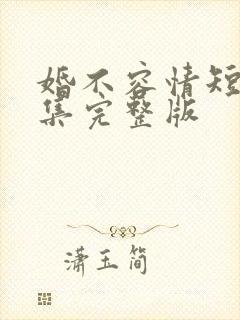 婚不容情短
集完整版
潇玉简